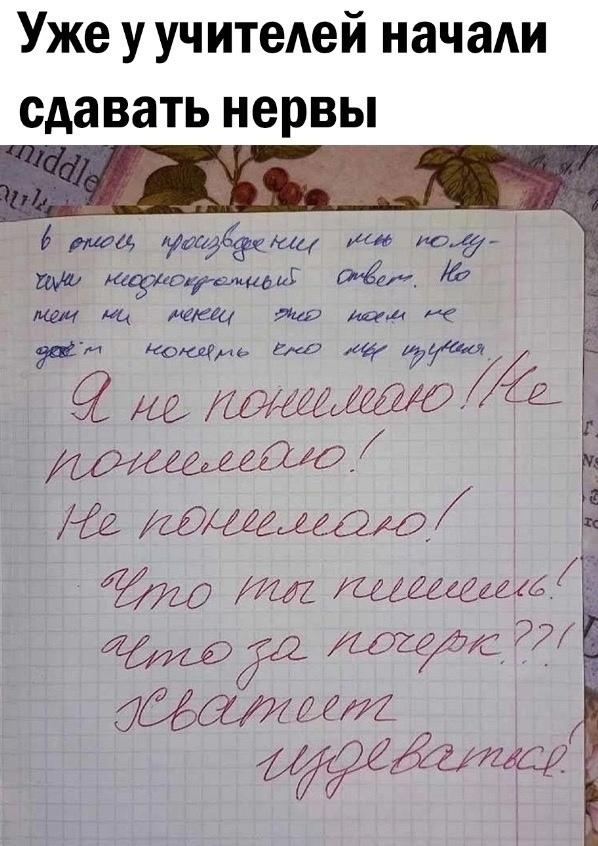 Уже у учителей начали
сдавать нервы
middle
в этом произведении мы полу-
чили неоднократный ответ. Но
тем ни менее это нам не
даём понять что мы изучили
Я не понимаю! Не
понимаю!
Не понимаю!
Что ты пишешь!
Что за почерк??!
Хватит
издеваться!